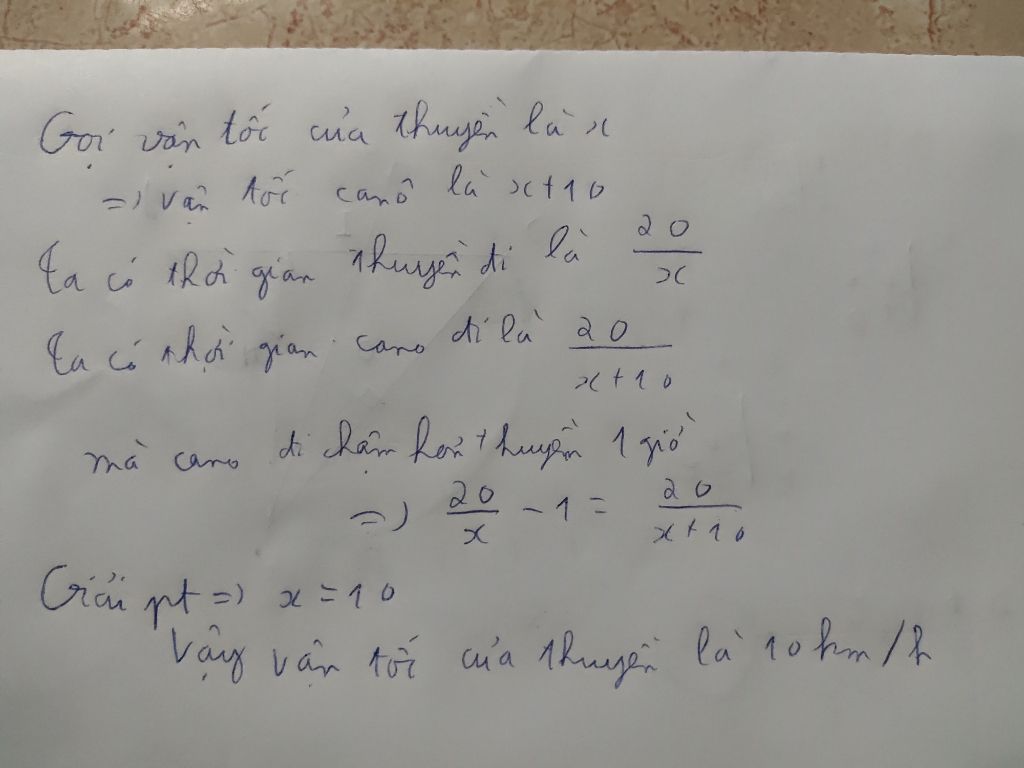 Gọi vận tốc của thuyền là x
=> vận tốc canô là x+10
Ta có thời gian thuyền đi là 20/x
Ta có thời gian cano đi là 20/(x+10)
mà cano đi chậm hơn thuyền 1 giờ
=> 20/x - 1 = 20/(x+10)
Giải pt => x = 10
Vậy vận tốc của thuyền là 10 km/h